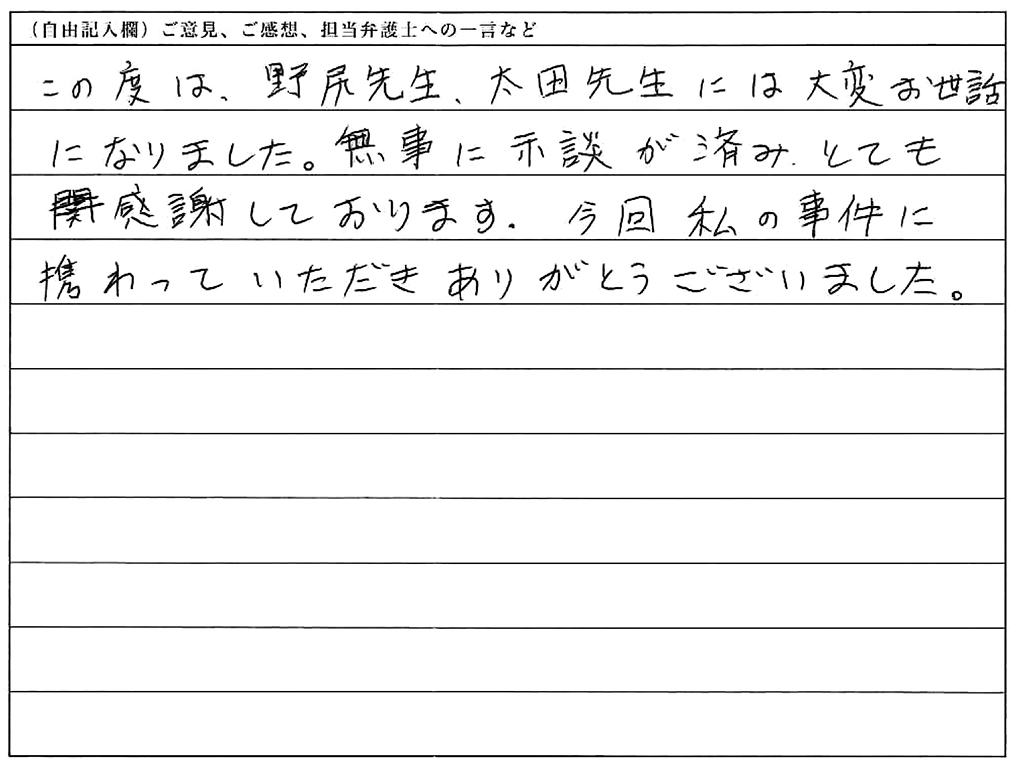 （自由記入欄）ご意見、ご感想、担当弁護士への一言など
この度は、野尻先生、太田先生には大変お世話
になりました。無事に示談が済み、とても
感謝しております。今回私の事件に
携わっていただきありがとうございました。